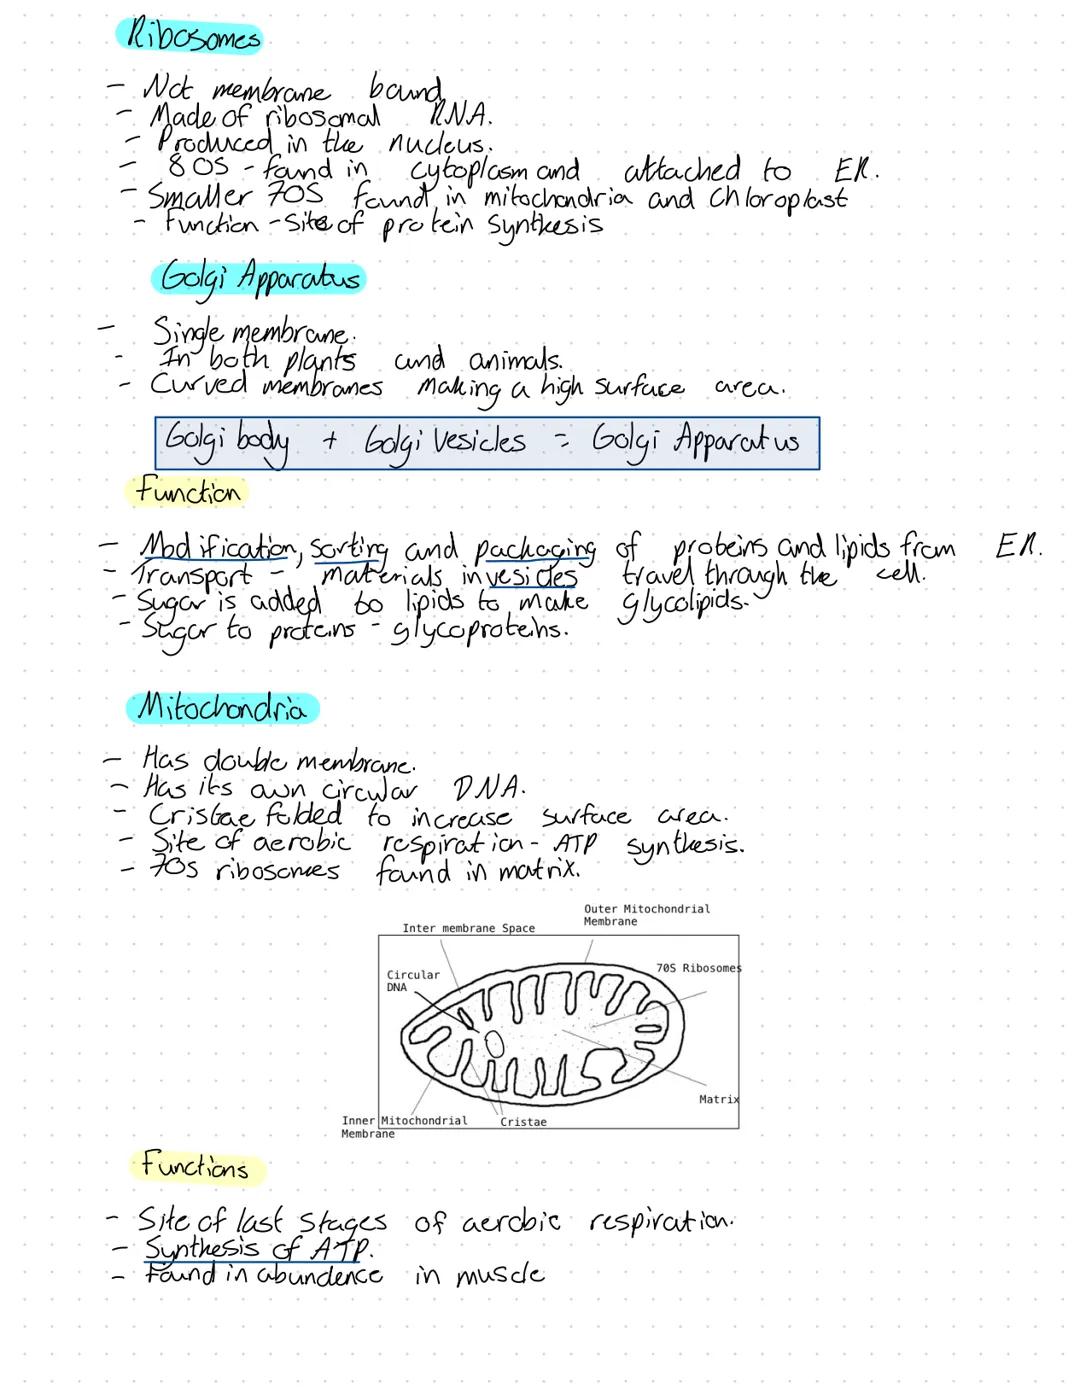 Ribosomes
- Not membrane bound
- Made of ribosomal RNA.
- Produced in the nucleus.
- 80S - found in cytoplasm and attached to ER.
- Smaller 70S found in mitochondria and chloroplast
- Function - Site of protein synthesis
Golgi Apparatus
- Single membrane.
- In both plants and animals.
- Curved membranes making a high surface area.
Golgi body + Golgi Vesicles = Golgi Apparatus
Function
- Modification, sorting and packaging of proteins and lipids from ER.
- Transport - materials in vesicles travel through the cell.
- Sugar is added to lipids to make glycolipids.
- Sugar to proteins - glycoproteins.
Mitochondria
- Has double membrane.
- Has its own circular DNA.
- Cristae folded to increase surface area.
- Site of aerobic respiration - ATP synthesis.
- 70s ribosomes found in matrix.
Outer Mitochondrial
Membrane
Inter membrane Space
70S Ribosomes
Circular
DNA
Matrix
Inner Mitochondrial
Membrane
Cristae
Functions
- Site of last stages of aerobic respiration.
- Synthesis of ATP.
- Found in abundence in muscle